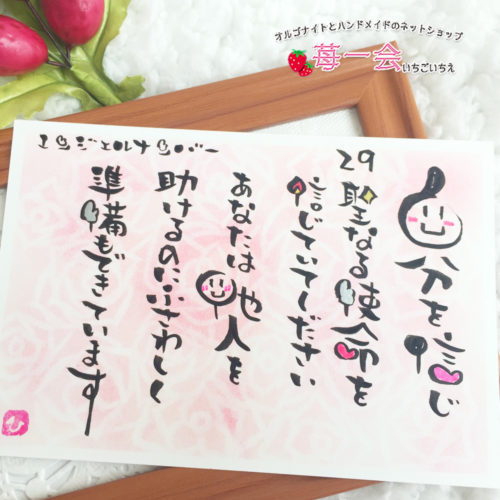 オルゴナイトとハンドメイドのネットショップ
苺一会いちごいちえ
エンジェルナンバー
29
自分を信じ
聖なる使命を
信じていてください
あなたは他人を
助けるのにふさわしく
準備もできています